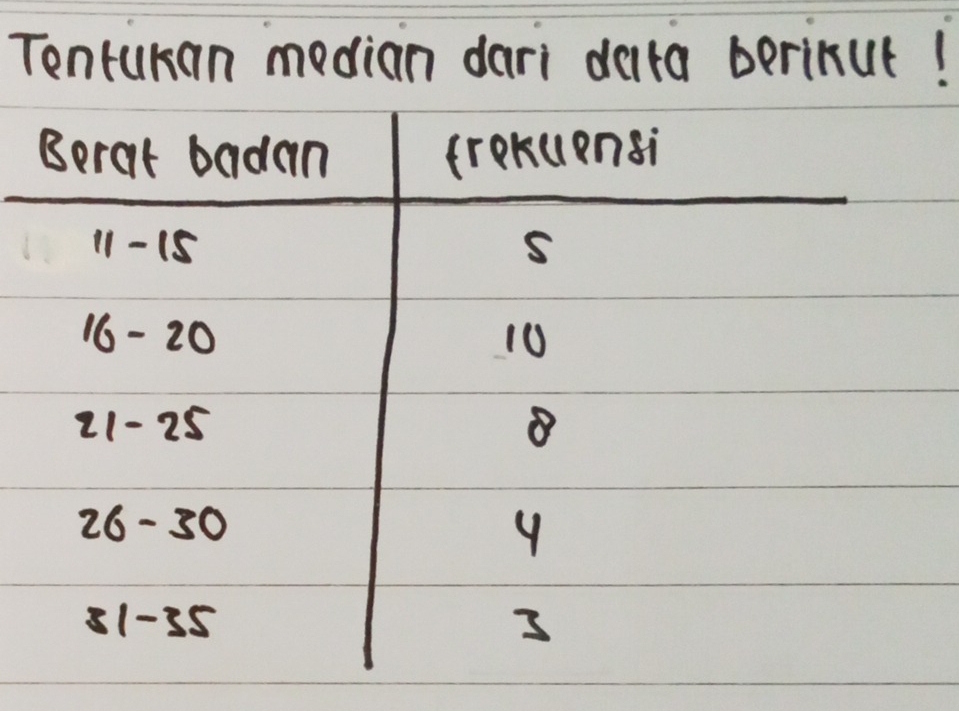 Tentukan median dari data berikut !
Berat badan frekuensi
11 - 15 5
16 - 20 10
21 - 25 8
26 - 30 4
31 - 35 3